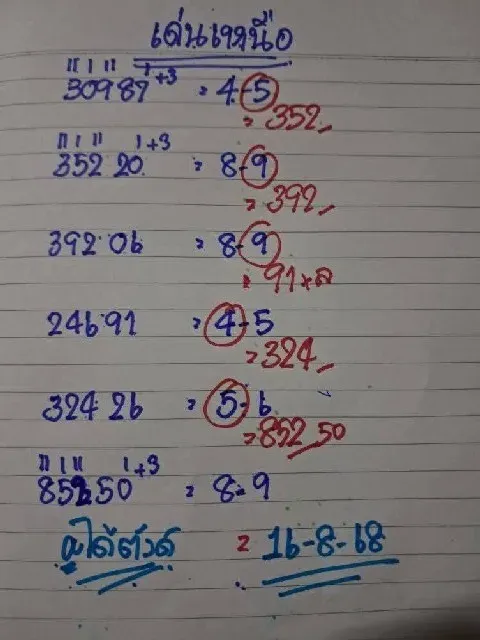 เด่นเหนือ
11 1 11 1+3
30987 = 4-5
= 352
11 1 11 1+3
352 20 = 8-9
= 392
392 06 = 8-9
91 x ล
246 91 = 4-5
= 324
324 26 = 5-6
= 852 50
11 1 11 1+3
852 50 = 8-9
= 16-8-68